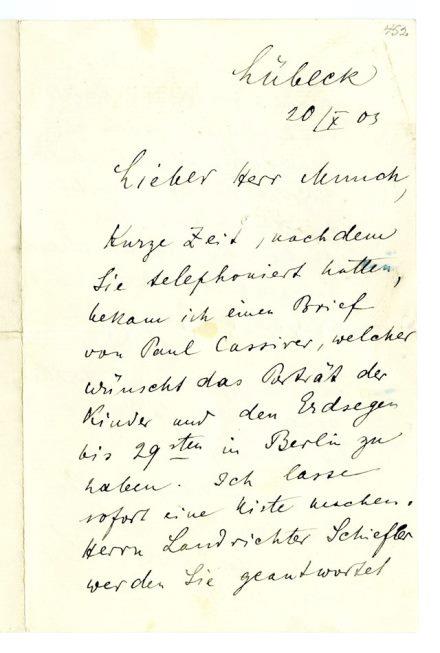 452
Lübeck
20/X 03
Lieber Herr Munch,
Kurze Zeit, nachdem
Sie telephoniert hatten,
bekam ich einen Brief
von Paul Cassirer, welcher
wünscht das Porträt der
Kinder und den Erdsegen
bis 29sten in Berlin zu
haben. Ich lasse
sofort eine Kiste machen.
Herrn Landrichter Schiefler
werden Sie geantwortet